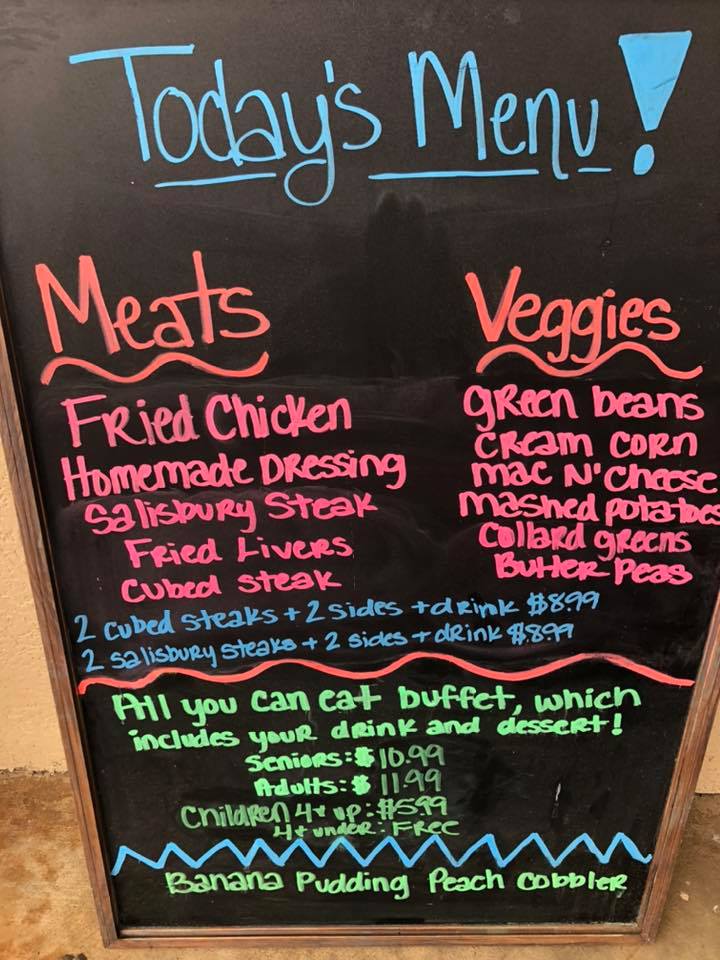 Today's Menu!
Meats
Fried Chicken
Homemade Dressing
Salisbury Steak
Fried Livers
Cubed Steak
Veggies
green beans
cream corn
mac N' cheese
mashed potatoes
collard greens
Butter Peas
2 cubed steaks + 2 sides + drink $8.99
2 salisbury steaks + 2 sides + drink $8.99
All you can eat buffet, which
includes your drink and dessert!
Seniors: $10.99
Adults: $11.99
Children 4+ up: $5.99
4+ under: FREE
Banana Pudding Peach Cobbler